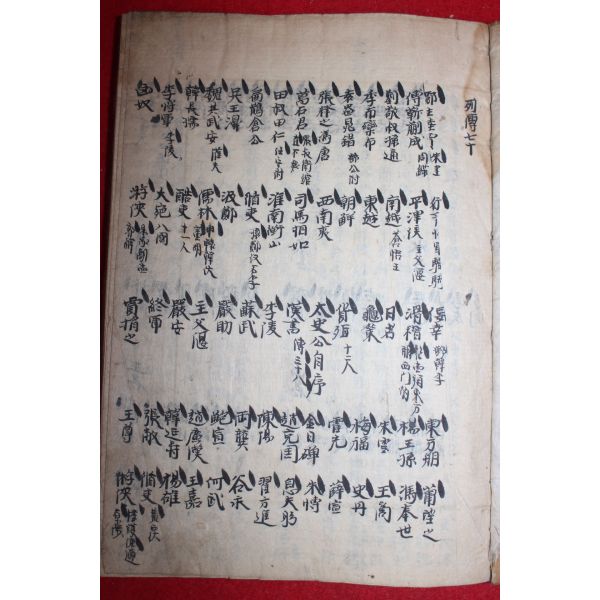 列傳七十
傅靳蒯成 周緤
劉敬叔孫通
季布欒布
袁盎晁錯 鄧公附
張釋之馮唐
萬石君
田叔田仁
扁鵲倉公
吳王濞
魏其武安 灌夫
韓長孺
李將軍 李陵
匈奴
平津侯 主父偃
南越 蒼梧王
東越
朝鮮
西南夷
司馬相如
淮南衡山
循吏
汲鄭
儒林
酷吏 十一人
大宛
游俠
佞幸
滑稽
日者
龜策
貨殖 十二人
太史公自序
漢書 傳三十八
李陵
蘇武
嚴助
主父偃
嚴安
終軍
賈捐之
東方朔
楊王孫
朱雲
梅福
霍光
金日磾
趙充国
陳湯
両龔
鮑宣
趙廣漢
韓延寿
張敞
王尊
蕭望之
馮奉世
王商
史丹
薛宣
朱博
息夫躬
翟方進
谷永
何武
王嘉
楊雄
循吏
游俠